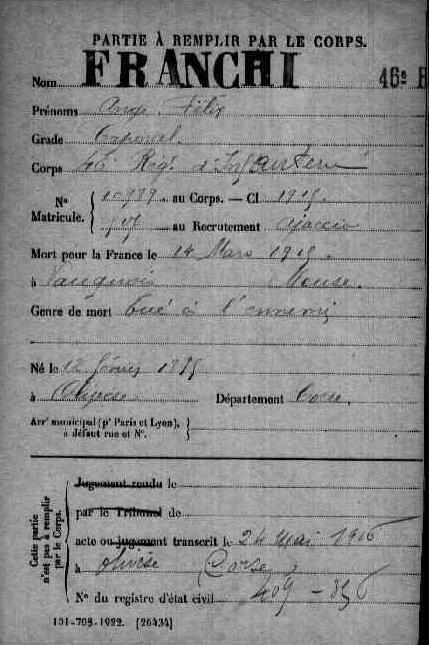 PARTIE À REMPLIR PAR LE CORPS.
Nom FRANCHI 46e
Prénoms Ange Félix
Grade Caporal
Corps 46e Régt d'Infanterie
N° Matricule. { 10939 au Corps. — Cl. 1915.
au Recrutement Ajaccio
Mort pour la France le 14 Mars 1915
à Vauquois Meuse.
Genre de mort tué à l'ennemi
Né le 12 février 1895
à Département Corse.
Arrt municipal (pr Paris et Lyon), à défaut rue et N°. }
Cette partie n'est pas à remplir par le Corps.
Jugement rendu le
par le Tribunal de
acte ou jugement transcrit le 24 Mai 1916
à (Corse)
N° du registre d'état civil 409 – 856
101-708-1922. [26434]